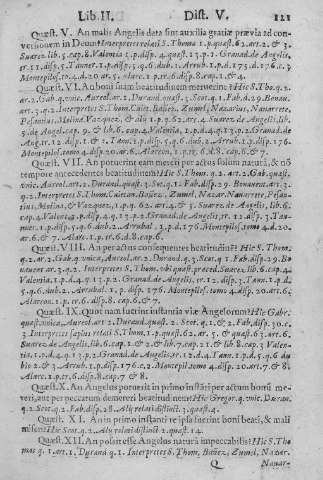 Lib. II. Dist. V. 121
Quæst. V. An malis Angelis data sint auxilia gratiæ prævia ad con-
versionem in Deum? Interpretes relati S. Thomæ 1. p. quæst. 62. art. 2. & 3.
Suarez lib. 5. cap. 6. Valentia 1. p. disp. 4. quæst. 13. p. 1. Granad. de Angelis,
tr. 11. disp. 5. Tanner. 1. p. disp. 5. q. 6. dub. Arrub. 1. p. d. 175. d. 176. c. 3.
Montepilos. to. 4. d. 20. ar. 5. Alarc. 1. p. tr. 6. disp. 8. cap. 1. & 4.
Quæst. VI. An boni suam beatitudinem meruerint? Hic S. Tho. q. 2.
ar. 2. Gab. q. vnic. Aureol. ar. 2. Durand. quæst. 3. Scot. q. 1. Fab. d. 29. Bonau.
art. 3. q. 2. Interpretes S. Thom. Caiet. Bañez, Zumel, Nazarius, Nauarrete,
Pesantius, Molina, Vazquez, & alij 1. p. q. 62. ar. 4. Suarez de Angelis, lib.
5. de Angel. cap. 9. & lib. 6. cap. 4. Valentia, 1. p. d. 4. q. 13. p. 2. Granad. de
Ang. tr. 12. disp. 1. & 2. Tann. 1. p. disp. 5. q. 6. dub. 2. Arrub. 1. p. disp. 176.
Montepilos. tomo 4. disp. 20. ar. 6. Alarcon, 1. p. tr. 6. d. 8. cap. 6. & 7.
Quæst. VII. An potuerint eam mereri per actus solum natura, & nō
tempore antecedentes beatitudinem? Hic S. Thom. q. 2. art. 2. Gab. quæst.
vnic. Aureol. art. 2. Durand. quæst. 3. Scot. q. 1. Fab. disp. 29. Bonauent. ar. 3.
q. 2. Interpretes S. Thom. Caietan. Bañez, Zumel, Nazar. Nauarrete, Pesan-
tius, Molina, & Vazquez, 1. p. q. 62. art. 4. & 5. Suarez de Angelis, lib. 6.
cap. 4. Valent. 1. p. disp. 4. q. 13. p. 2. Granad. de Angelis, tr. 12. disp. 3. Tan-
ner, 1. p. disp. 5. q. 6. dub. 2. Arrubal, 1. p. d. 176. Montepilos. tomo 4. d. 20.
ar. 6. & 7. Alarc. 1. p. tr. 6. d. 8. cap. 6.
Quæst. VIII. An per actus consequentes beatitudinē? Hic S. Thom.
q. 2. ar. 2. Gab. q. vnica, Aureol. ar. 2. Durand. q. 3. Scot. q. 1. Fab. disp. 29. Bo
nauent. ar. 3. q. 2. Interpretes S. Thom. vbi quæst. præced. Suarez, lib. 6. cap. 4.
Valentia, 1. p. d. 4. q. 13. p. 2. Granad. de Angelis, tr. 12. disp. 3. Tann. 1. p. d.
5. q. 6. dub. 2. Arrubal, 1. p. disp. 176. Montepilos. tomo 4. disp. 20. art. 6.
Alarcon. 1. p. tr. 6. disp. 8. cap. 6. & 7.
Quæst. IX. Quot nam fuerint instantia viæ Angelorum? Hic Gabr.
quæst. vnica, Aureol. art. 2. Durand. quæst. 2. Scot. q. 1. & 2. Fab. disp. 30. ar.
3. Interpretes sæpius relati S. Thom. 1. p. quæst. 62. ar. 5. & quæst. 63. art. 6.
Suarez de Angelis, lib. 6. cap. 1. & 2. & lib. 7. cap. 21. & lib. 8. cap. 3. Valen-
tia, 1. p. d. 4. q. 13. p. 2. Granad. de Angelis, tr. 12. d. 4. Tann. 1. p. d. 5. q. 6. du
bio 2. & 3. Arrub. 1. p. disp. 176. c. 2. Montepilos. tomo 4. disp. 20. art. 7. & 8.
Alarc. 1. p. tr. 6. disp. 8. cap. 7. & 8.
Quæst. X. An Angelus potuerit in primo instāti per actum boni me-
reri, aut per peccatum demereri beatitudinem? Hic Gregor. q. vnic. Duran.
q. 2. Scot. q. 2. Fab. disp. 28. Alij relati distinct. 3. quæst. 4.
Quæst. XI. An in primo instanti re ipsa fuerint boni beati, & mali
miseri? Hic Scot. q. 2. Alij relati distinct. 2. quæst. 14.
Quæst. XII. An possit esse Angelus natura impeccabilis? Hic S. Tho
mas q. 1. art. 1. Durand q. 1. Interpretes S. Thom. Bañez, Zumel, Nazar.
Q Nauar-